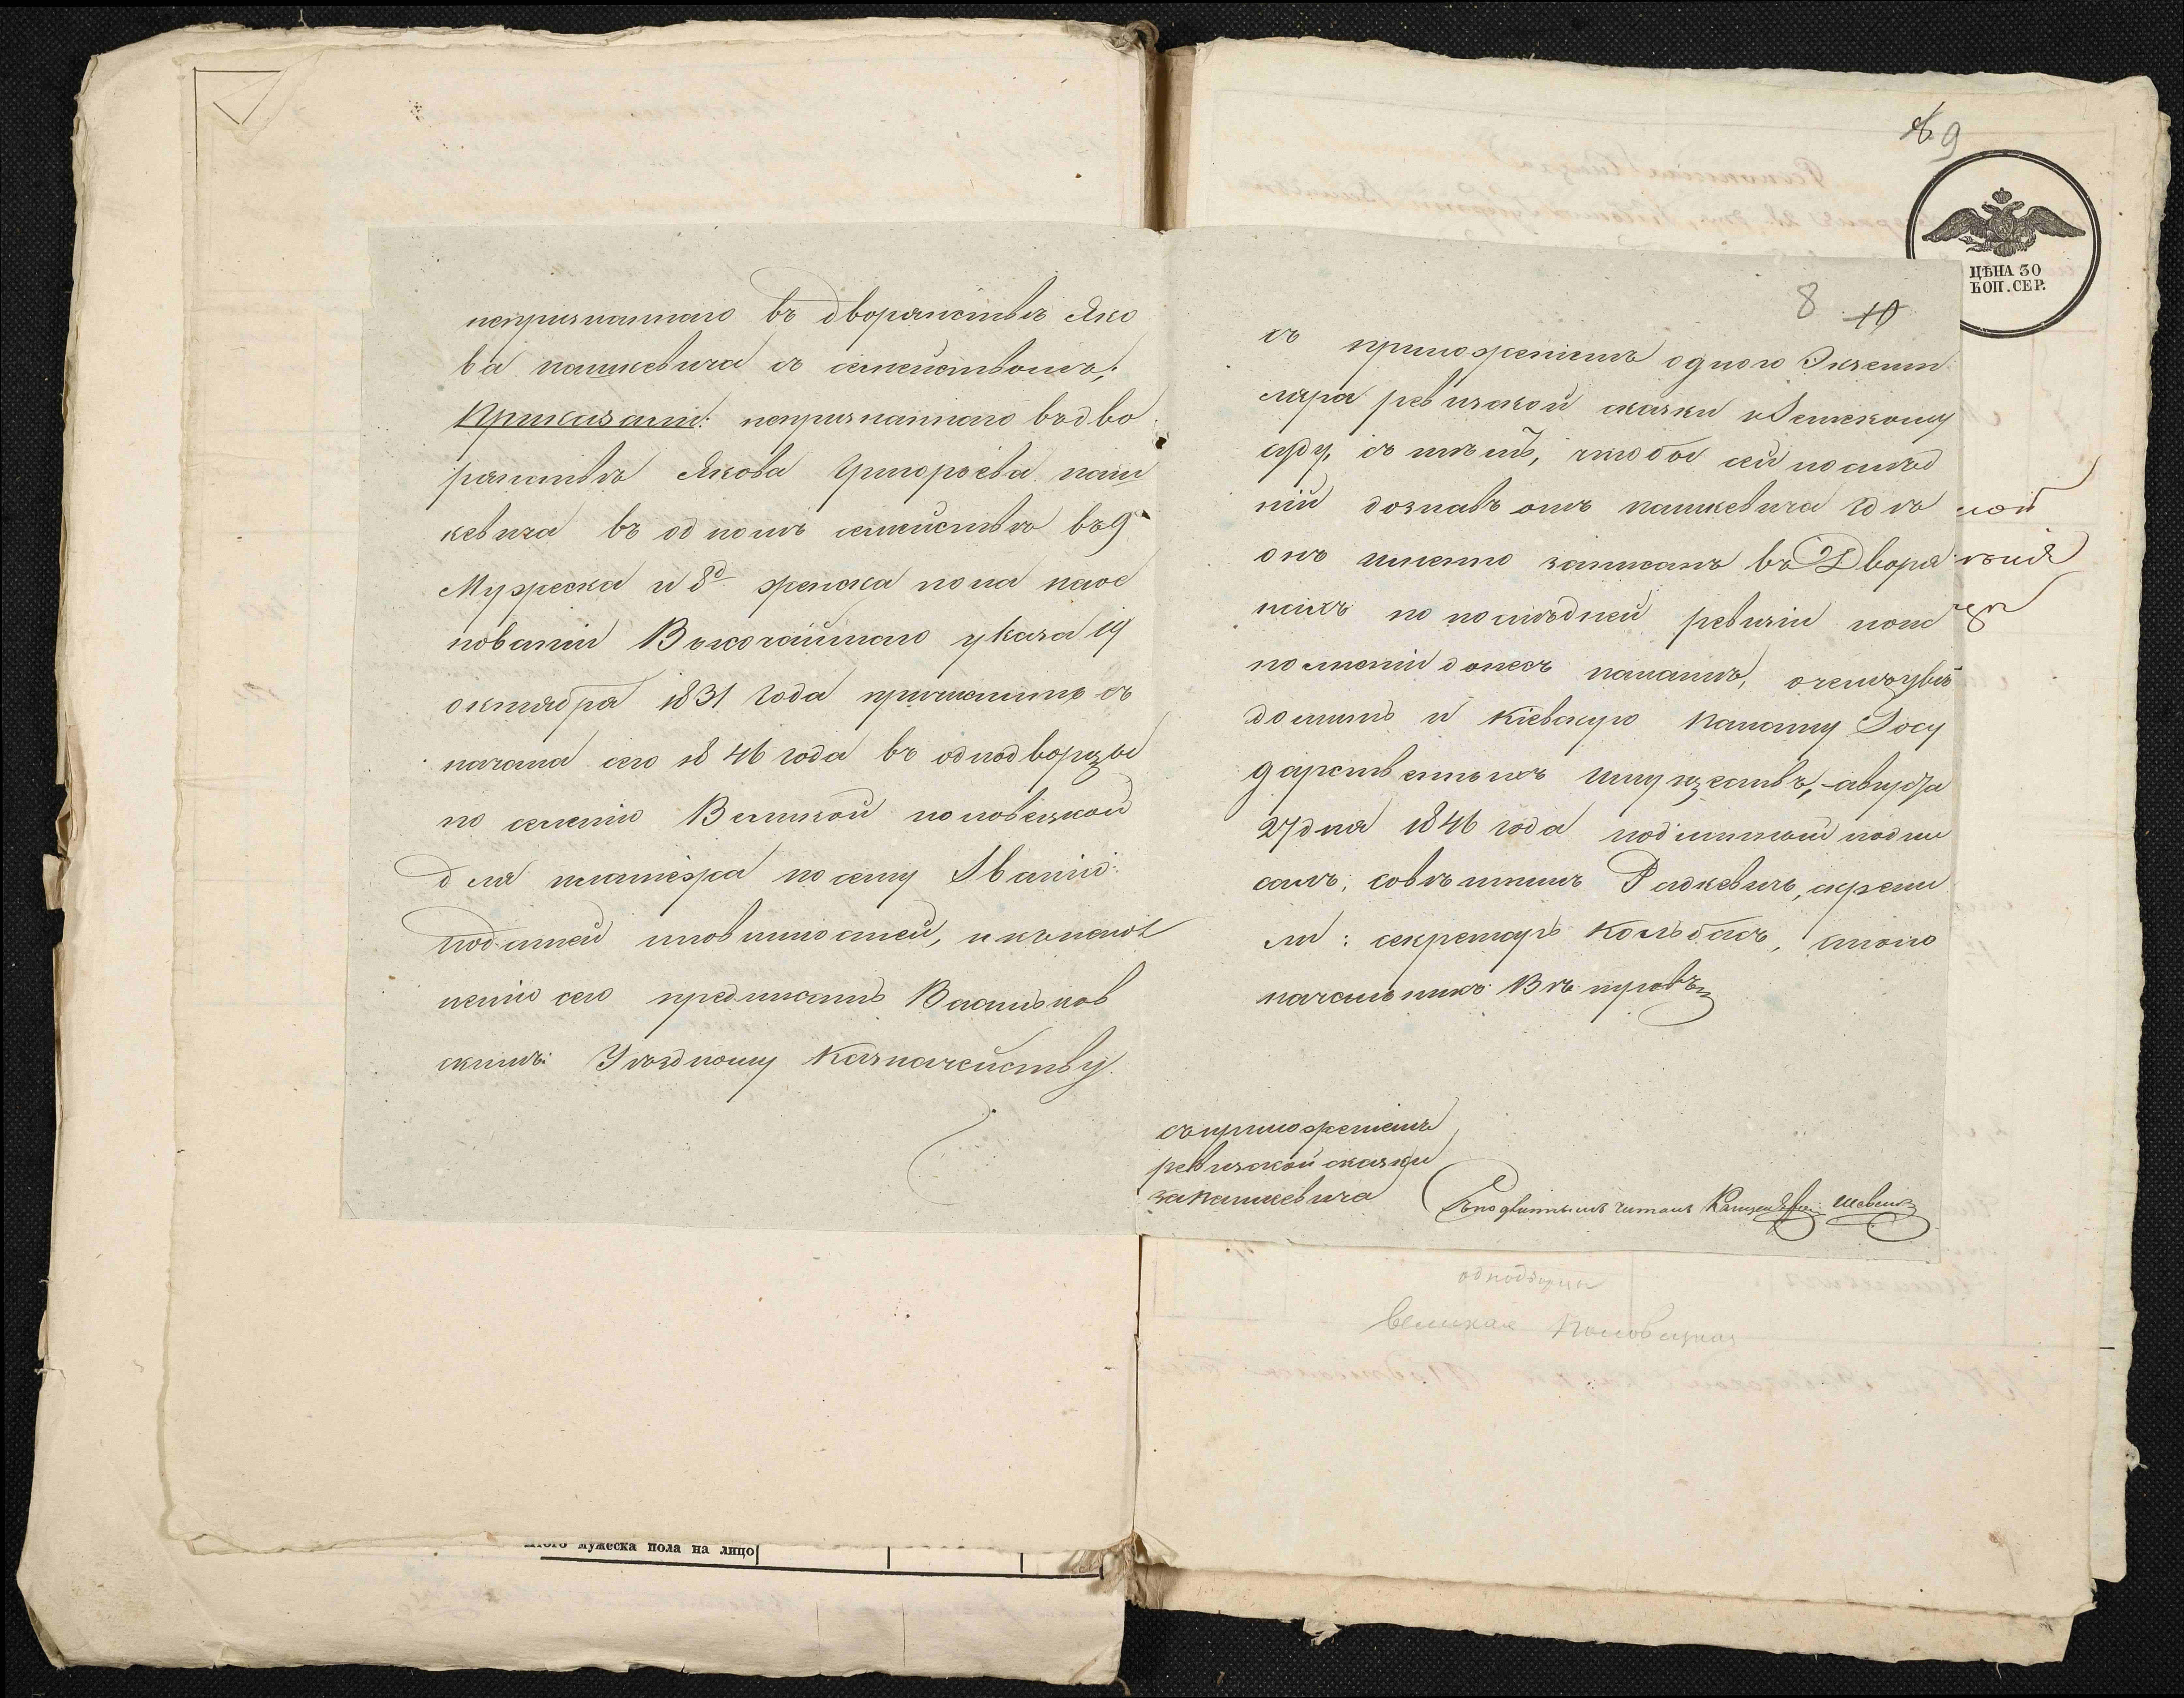 непризнаннаго въ дворянствѣ Яко
ва пашкевича съ семействомъ;
Приказали: непризнаннаго въ дво
рянствѣ Якова Григорьева паш
кевича въ одномъ семействѣ въ 9
Мужеска и 8д женска пола наос
нованіи Высочайшаго указа 19
октября 1831 года причислить съ
начала сего 1846 года въ однодворцы
по селенію Великой половецкой
для платежа по сему Званію
податей иповинностей, и къиспол
ненію сего предписать Васильков
скимъ: Уѣздному Казначейству
8 10
съ приложеніемъ одного Экземп
ляра ревизской сказки и Земскому
суду, съ тѣмъ, чтобы сей послѣд
ній дознавъ отъ пашкевича гдѣ
онъ именно записанъ въ Дворя
нахъ по послѣдней ревизіи поис
полненіи донесъ палатѣ, о чемъ увѣ
домить и Кіевскую палату Госу
дарственныхъ имуществъ, августа
27 дня 1846 года подлинный подпи
салъ: совѣтникъ Радкевичъ, скрепи
ли: секретарь Кольбасъ, столо
начальникъ Вѣтровъ
съприложеніемъ
ревизской сказки
за пашкевича
Съподлиннымъ читалъ Канцеляр: Шевель
№ 9
ЦѢНА 30
КОП. СЕР.
однодворцы
Великая Половецкая
Итого мужеска пола на лицо